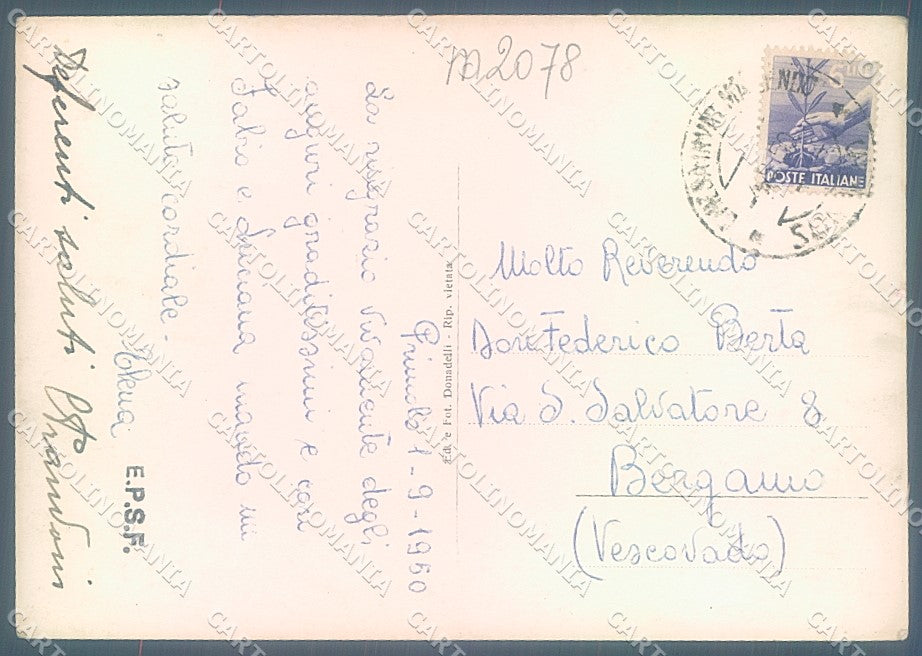 m2078
POSTE ITALIANE
Molto Reverendo
Don Federico Berta
Via S. Salvatore 8
Bergamo
(Vescovado)
Ediz. e Fot. Donadelli - Rip. vietata
1-9-1950
La ringrazio vivamente degli
auguri graditissimi e con
Fabio e Luciana mando un
saluto cordiale -
Elena
E.P.S.F.
Deferenti saluti
CARTOLINOMANIA